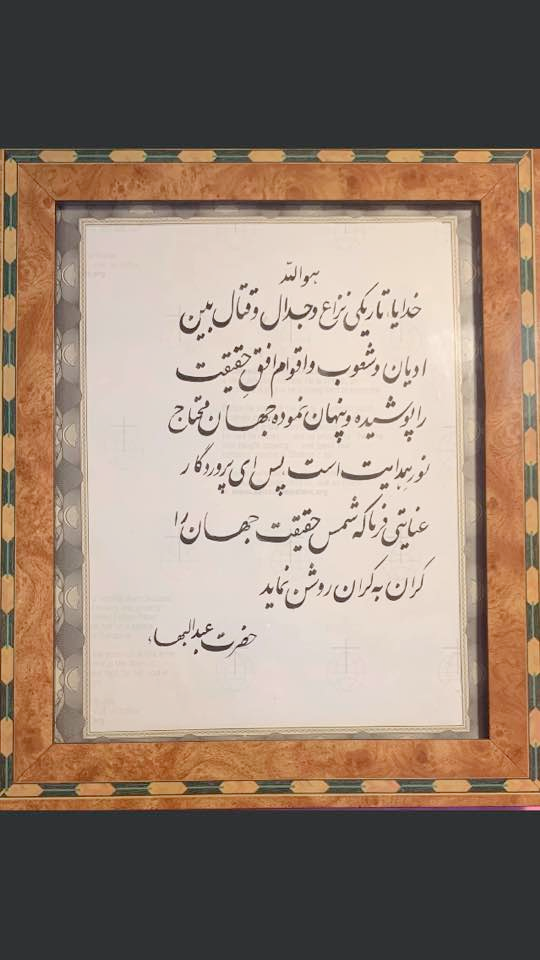 هوالله
خدایا، تاریکی نزاع و جدال و قتال بین
ادیان و شعوب و اقوام افقِ حقیقت
را پوشیده و پنهان نموده جهان محتاج
نورِ هدایت است، پس ای پروردگار
عنایتی فرما که شمس حقیقت جهان را
کران به کران روشن نماید
حضرت عبدالبهاء